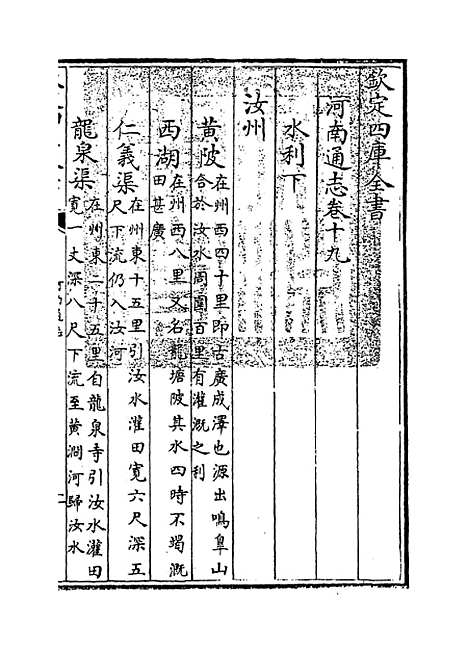 欽定四庫全書
河南通志卷十九
水利下
汝州
黄陂在州西四十里即古廣成澤也源出鳴臯山
合於汝水周圍百里有灌溉之利
西湖在州西八里又名龍塘陂其水四時不竭溉
田甚廣
仁義渠在州東十五里引汝水灌田寛六尺深五
尺下流仍入汝河
龍泉渠在州東二十五里自龍泉寺引汝水灌田
寛一丈深八尺下流至黄澗河歸汝水